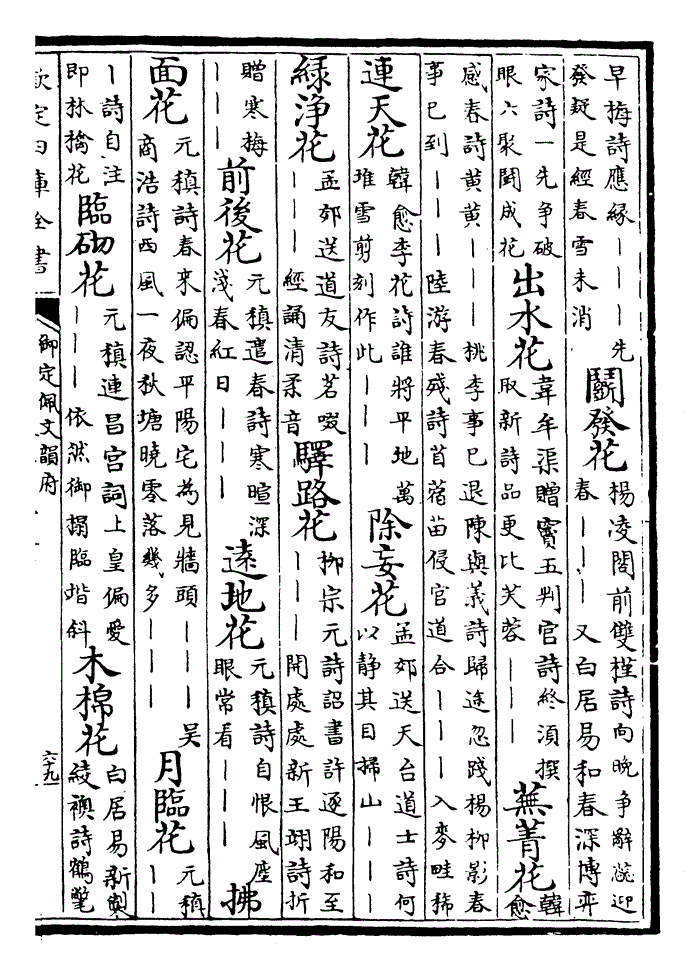 早梅詩應緣｜｜｜先發疑是經春雪未消 鬬發花 楊凌閣前雙槿詩向晚争辭蕊迎春｜｜｜又白居易和春深博弈
家詩一先争破眼六聚鬬成花 出水花 韋牟渠贈竇五判官詩終須撰取新詩品更比芙蓉｜｜｜ 蕪菁花 韓愈
感春詩黄黄｜｜｜桃李事已退陳與義詩歸途忽踐楊柳影春事已到｜｜｜陸游春殘詩苜蓿苗侵官道合｜｜｜入麥畦稀
連天花 韓愈李花詩誰將平地萬堆雪剪刻作此｜｜｜ 除妄花 孟郊送天台道士詩何以静其目掃山｜｜｜
緑浄花 孟郊送道友詩茗啜｜｜｜經誦清柔音 驛路花 柳宗元詩詔書許逐陽和至｜｜｜開處處新王翊詩折
贈寒梅｜｜｜ 前後花 元稹遣春詩寒暄深淺春紅日｜｜｜ 遠地花 元稹詩自恨風塵眼常看｜｜｜ 拂
面花 元稹詩春來偏認平陽宅為見牆頭｜｜｜吴商浩詩西風一夜秋塘曉零落幾多｜｜｜ 月臨花 元稹｜｜
｜詩自注即林檎花 臨砌花 元稹連昌宫詞上皇偏愛｜｜｜依然御榻臨堦斜 木棉花 白居易新製綾襖詩鶴氅
欽定四庫全書
御定佩文韻府
六十九